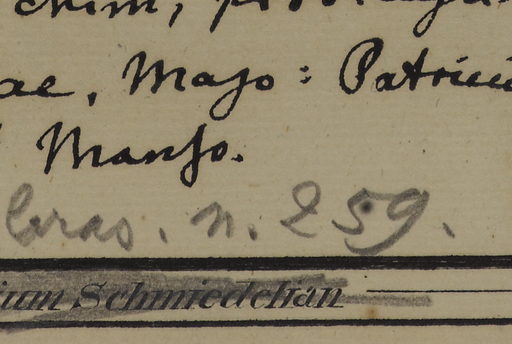 ae, Majo: Patrici
Manso.
Caras. n. 259.
ium Schmiedelian